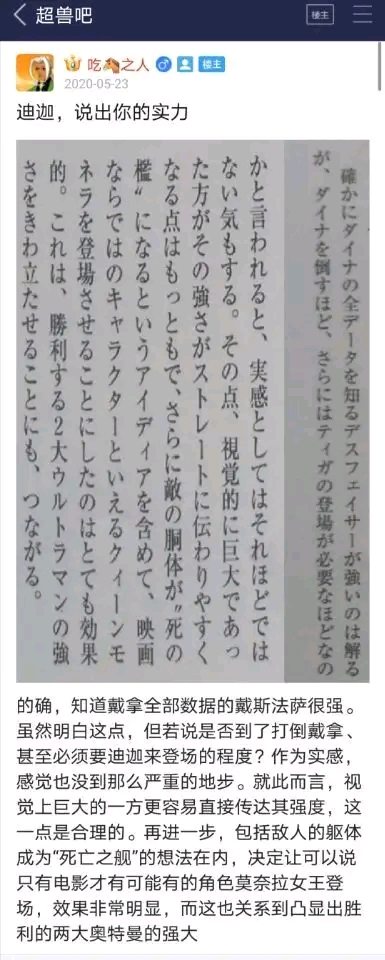 超兽吧
楼主
吃🐴之人
楼主
2020-05-23
迪迦，说出你的实力
確かにダイナの全データを知るデスフェイサーが強いのは解る
が、ダイナを倒すほど、さらにはティガの登場が必要なほどなの
かと言われると、実感としてはそれほどでは
ない気もする。その点、視覚的に巨大であっ
た方がその強さがストレートに伝わりやすく
なる点はもっともで、さらに敵の胴体が〝死の
檻〟になるというアイディアを含めて、映画
ならではのキャラクターといえるクィーンモ
ネラを登場させることにしたのはとても効果
的。これは、勝利する2大ウルトラマンの強
さをきわ立たせることにも、つながる。
的确，知道戴拿全部数据的戴斯法萨很强。
虽然明白这点，但若说是否到了打倒戴拿、
甚至必须要迪迦来登场的程度？作为实感，
感觉也没到那么严重的地步。就此而言，视
觉上巨大的一方更容易直接传达其强度，这
一点是合理的。再进一步，包括敌人的躯体
成为“死亡之舰”的想法在内，决定让可以说
只有电影才有可能有的角色莫奈拉女王登
场，效果非常明显，而这也关系到凸显出胜
利的两大奥特曼的强大